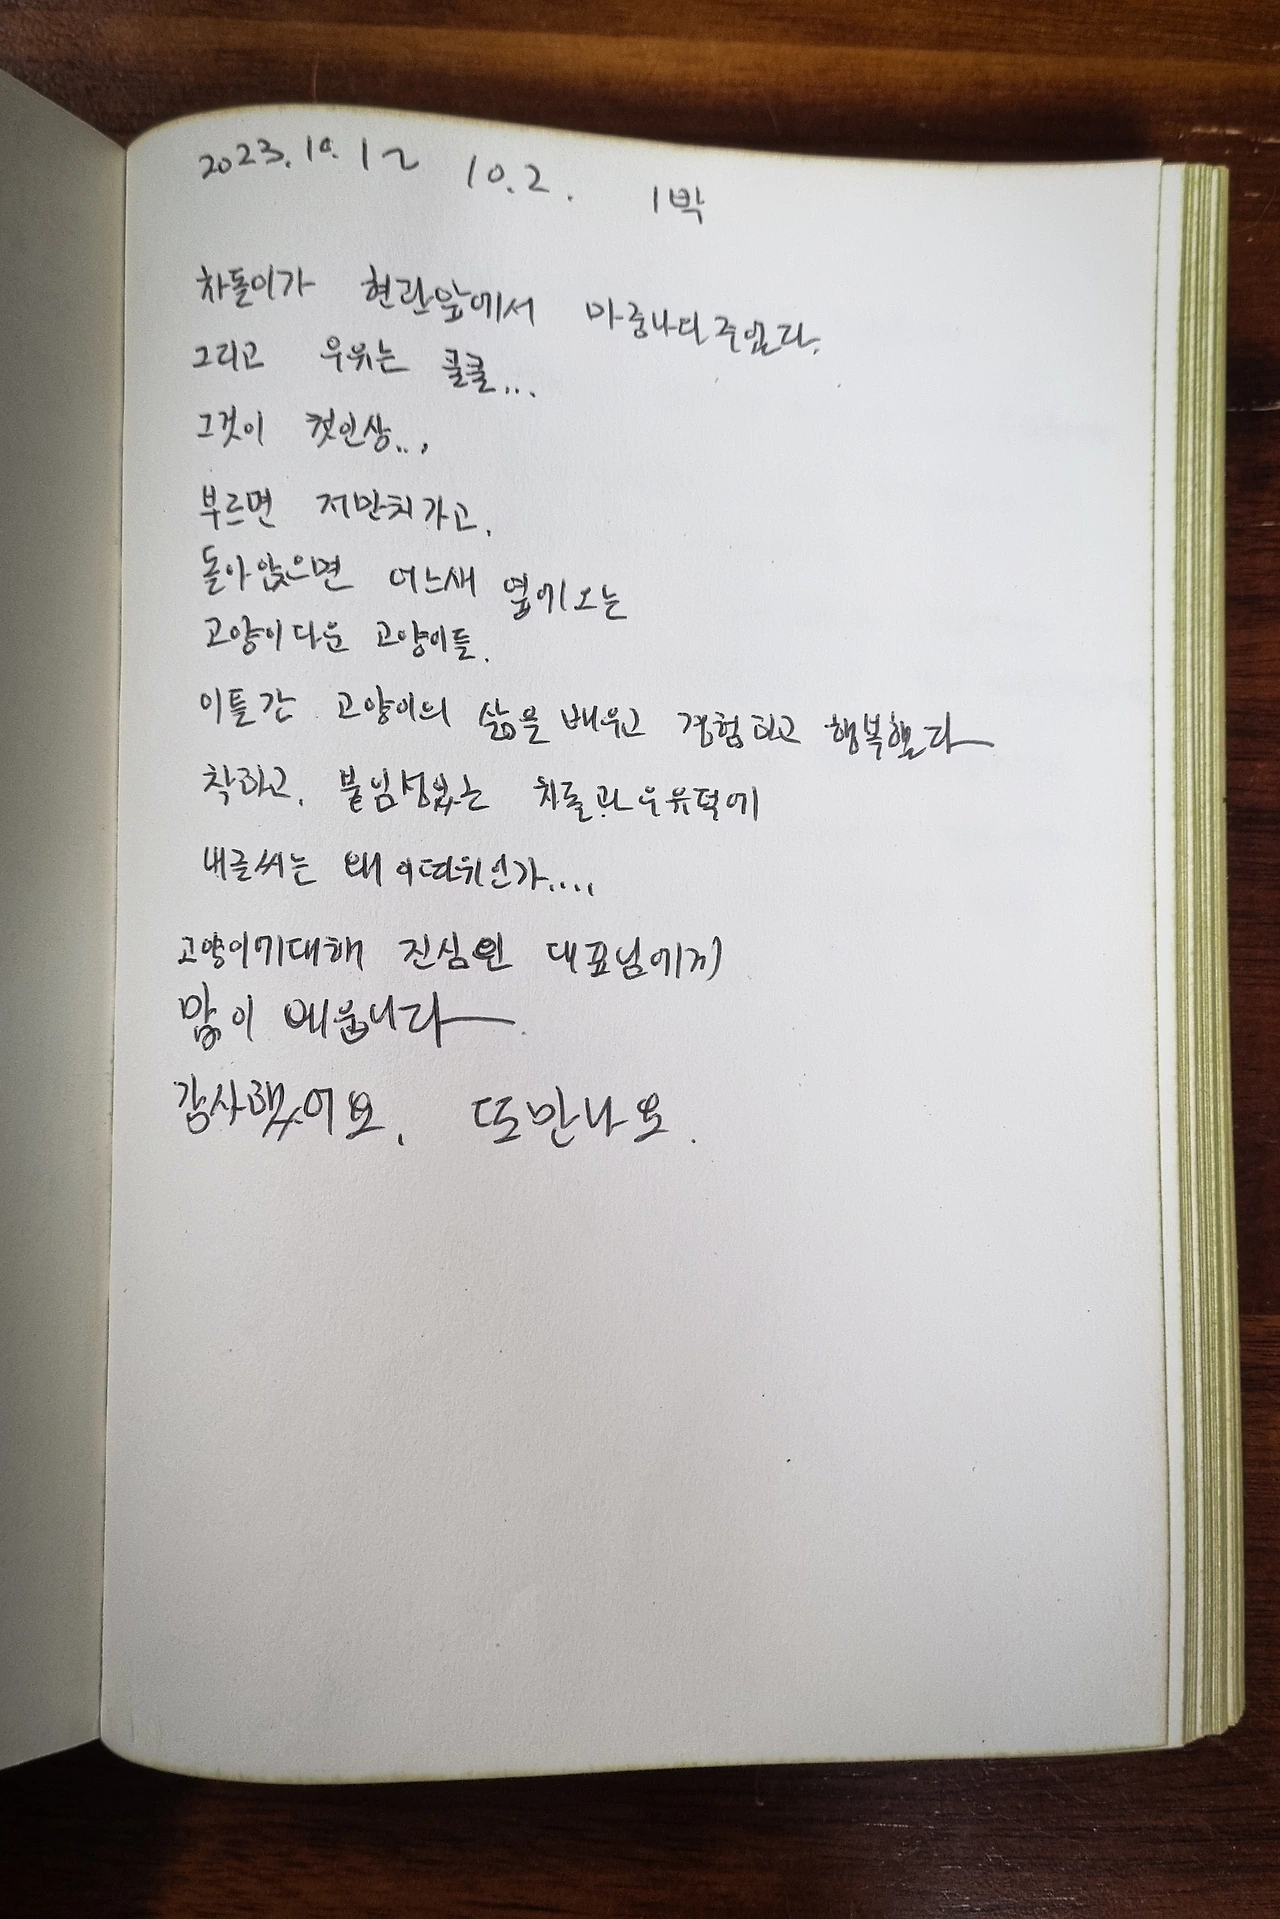 2023.10.1~ 10.2. 1박
차돌이가 현관앞에서 마중나와주었다.
그리고 우유는 쿨쿨...
그것이 첫인상...
부르면 저만치가고,
돌아앉으면 어느새 옆에오는
고양이다운 고양이들.
이틀간 고양이의 삶을 배우고 경험하고 행복했다
착하고, 붙임성있는 차돌과 우유덕에
내글씨는 왜 이따위인가....
고양이기대해 진심인 대표님에게
많이 배웁니다
감사했어요, 또만나요.